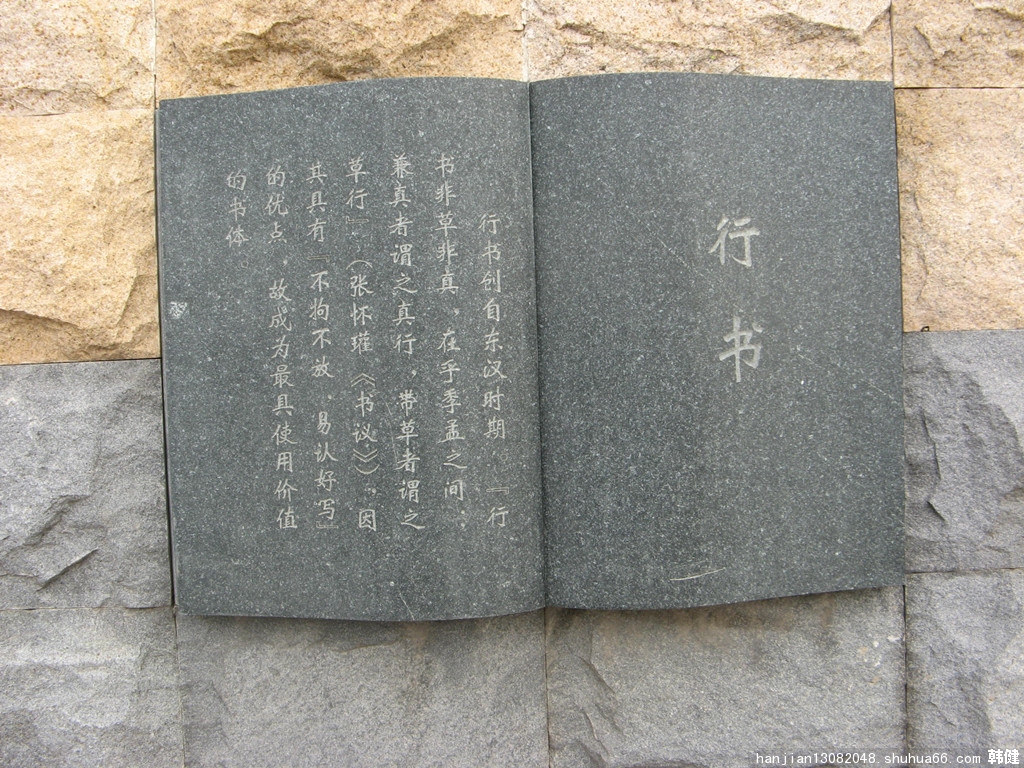 行书
行书创自东汉时期。『行
书非草非真，在乎季孟之间，
兼真者谓之真行，带草者谓之
草行』。（张怀瓘《书议》）。因
其具有『不狗不放，易认好写』
的优点，故成为最具使用价值
的书体
hanjian13082048.shuhua66.com 韩健